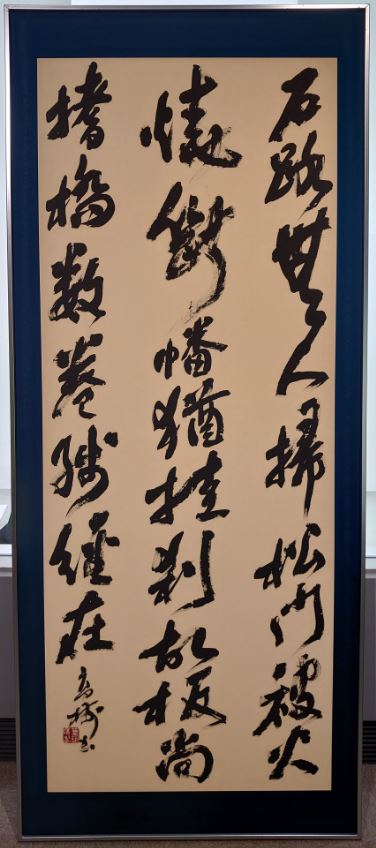 石路無人掃松門被火
燒斷幡猶挂刹故板尚
搘橋数卷殘經在